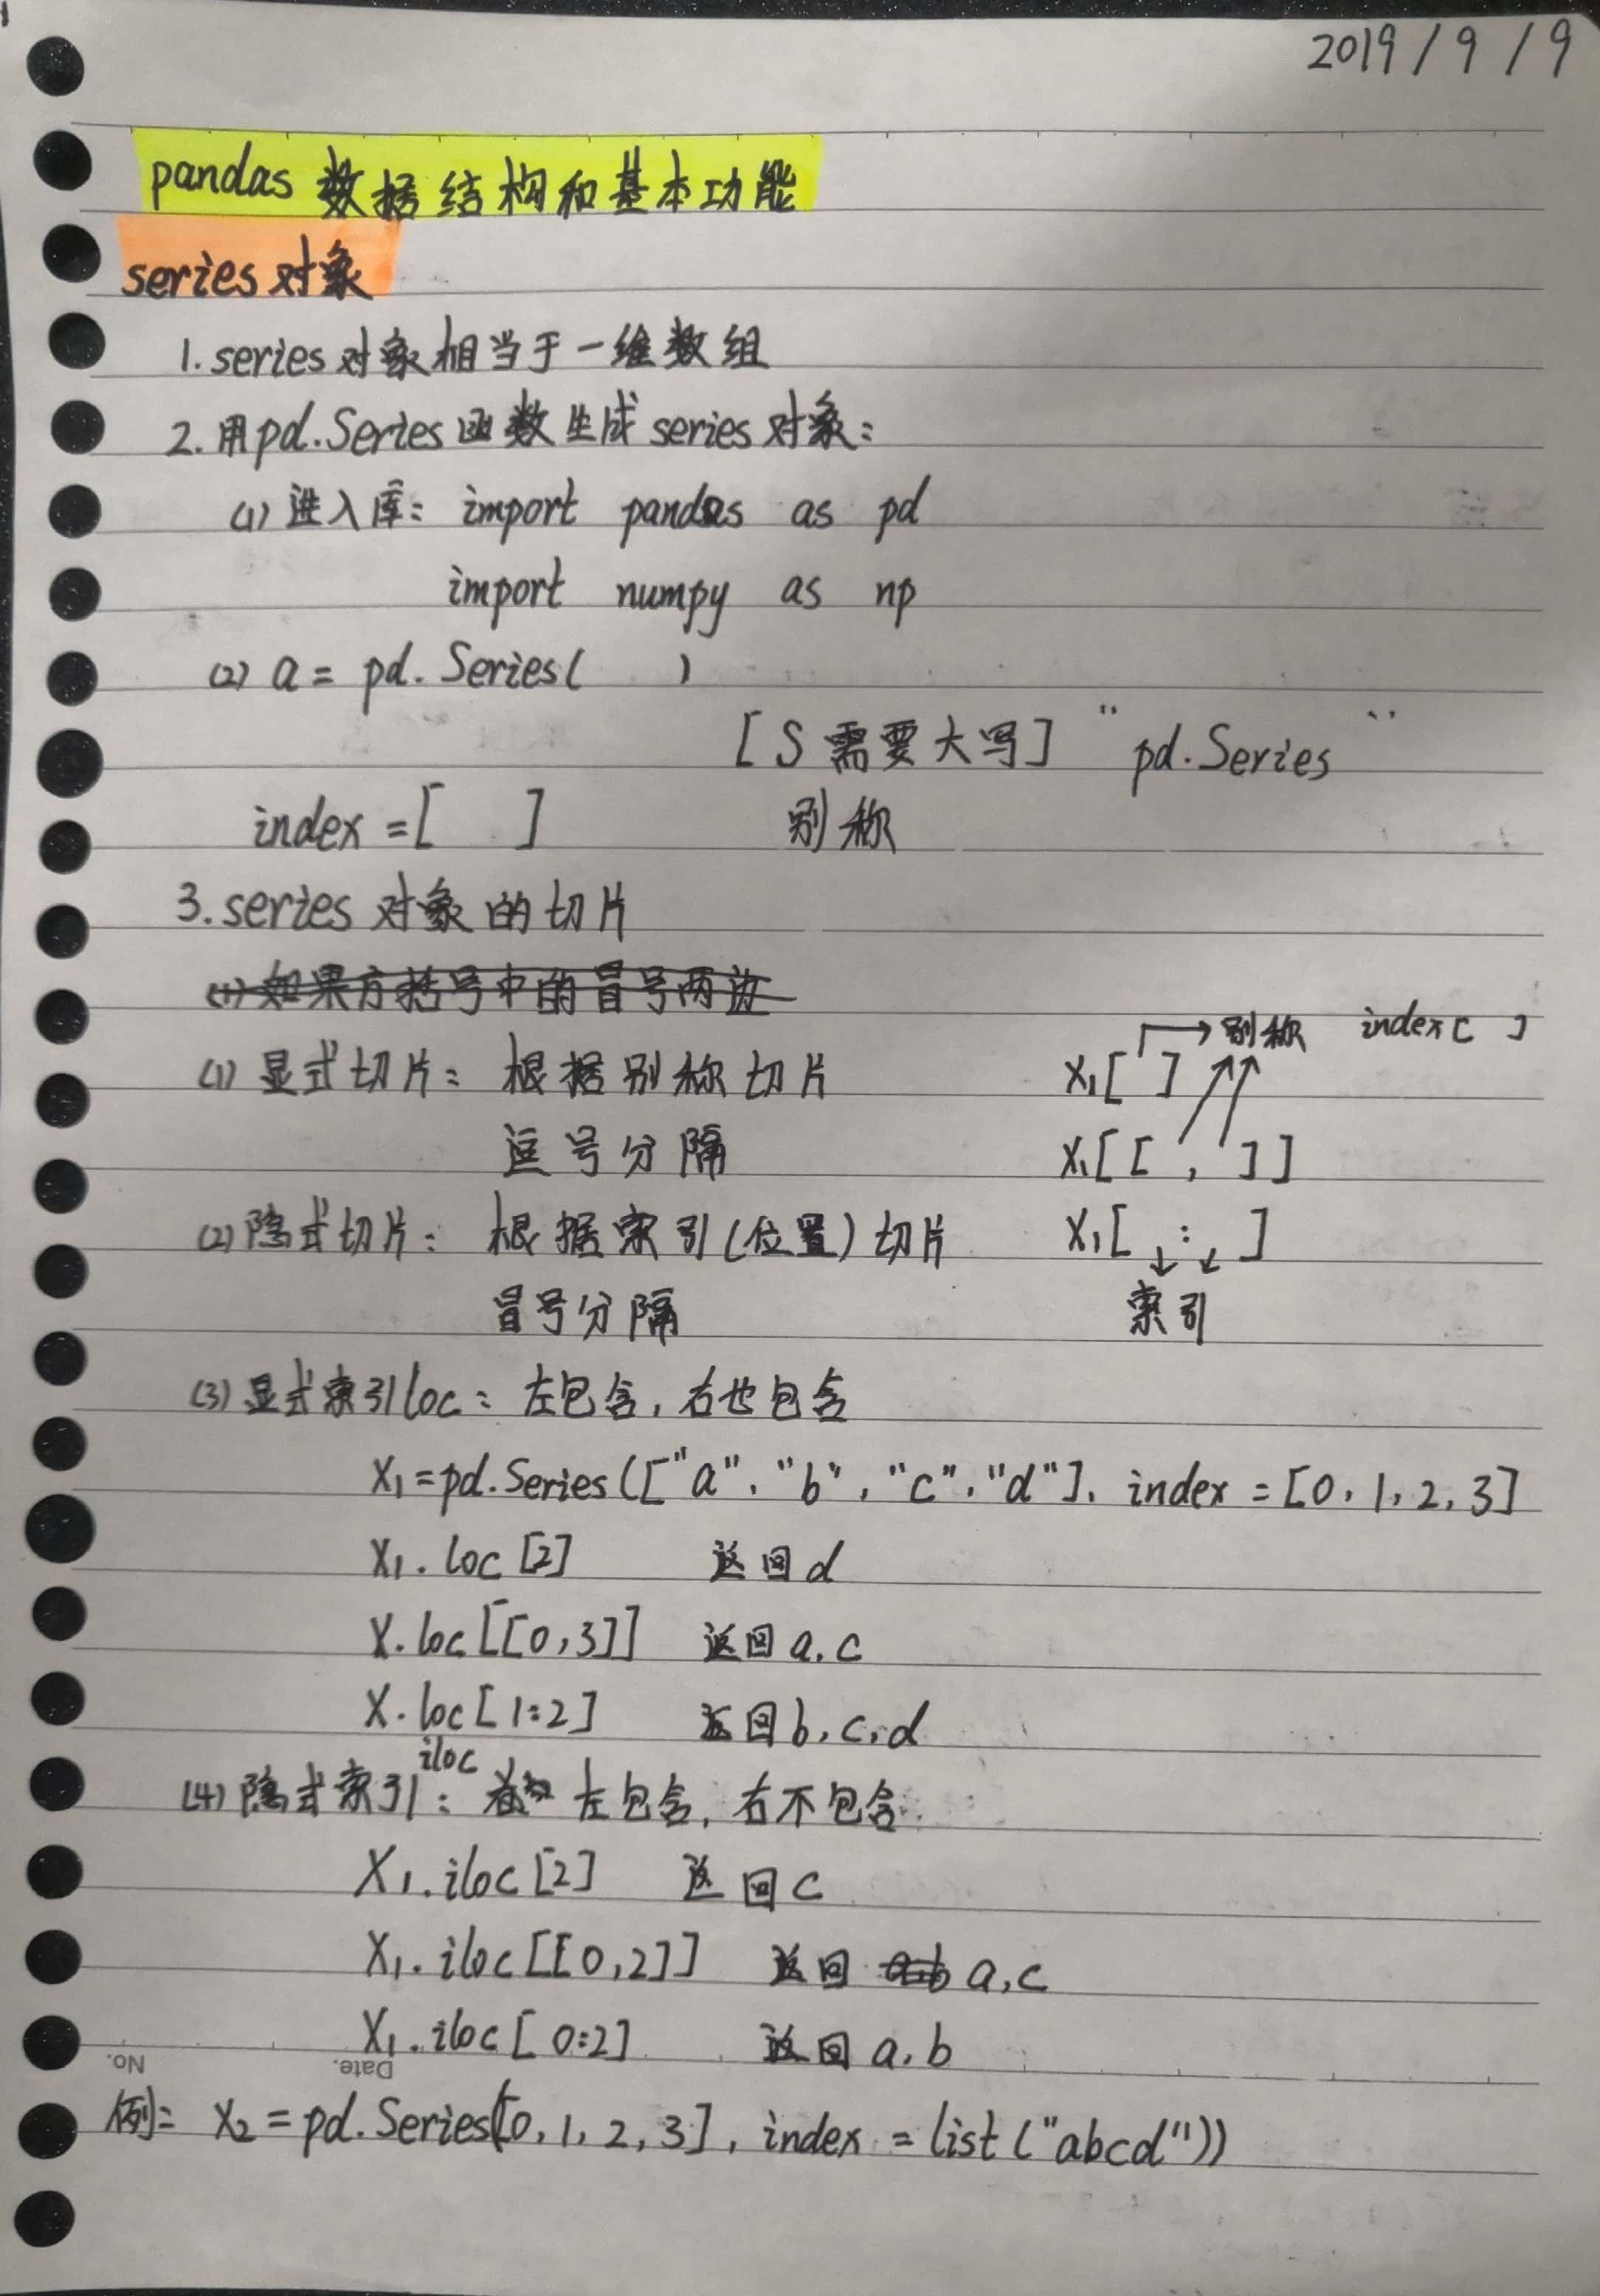 2019/9/9
pandas 数据结构和基本功能
series对象
1.series对象相当于一维数组
2.用pd.Series函数生成series对象:
(1)进入库: import pandas as pd
import numpy as np
(2) a = pd.Series( )
[S需要大写] "pd.Series"
index=[ ] 别称
3.series对象的切片
(1)如果方括号中的冒号两边
→别称 index[ ]
(1)显式切片: 根据别称切片 X₁[ ]
逗号分隔 X₁[[ , ]]
(2)隐式切片: 根据索引(位置)切片 X₁[ : ]
冒号分隔 索引
(3)显式索引loc: 左包含,右也包含
X₁=pd.Series(["a","b","c","d"], index=[0,1,2,3]
X₁.loc[2] 返回d
X.loc[[0,3]] 返回a,c
X.loc[1:2] 返回b,c,d
(4)隐式索引iloc: 左包含,右不包含
X₁.iloc[2] 返回c
X₁.iloc[[0,2]] 返回 a,b a,c
X₁.iloc[0:2] 返回a,b
No. Date.
例: X₂=pd.Series([0,1,2,3], index=list("abcd"))